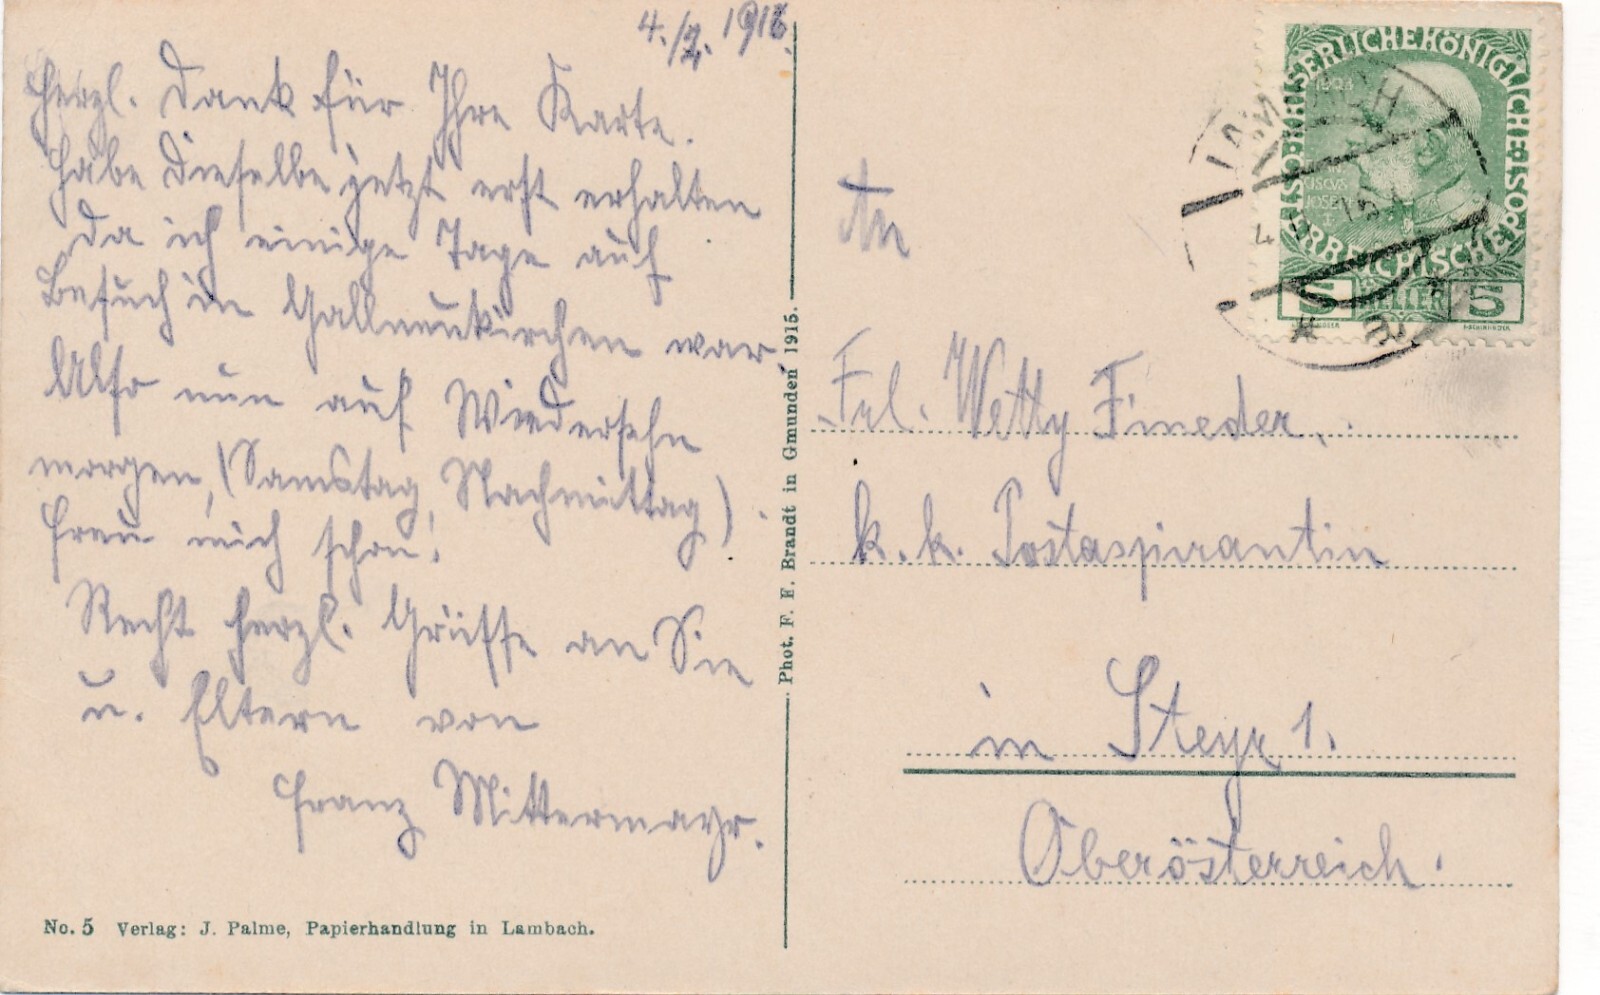 4./2. 1916.
Herzl. Dank für Ihre Karte.
Habe dieselbe jetzt erst erhalten
da ich einige Tage auf
Besuch in Gallneukirchen war.
Also nun auf Wiedersehn
morgen, (Samstag, Nachmittag).
Freu mich schon!
Recht herzl. Grüsse an Sie
u. Eltern von
Franz Mittermayr.
No. 5 Verlag: J. Palme, Papierhandlung in Lambach.
Phot. F. E. Brandt in Gmunden 1915.
KAISERLICHE KÖNIGLICHE ÖSTERREICHISCHE POST
1908
FRAN
CISCVS
JOSEPH
I
5 HELLER 5
LAMBACH
An
Frl. Wetty Fineder.
k. k. Postaspirantin
in Steyr 1.
Oberösterreich.